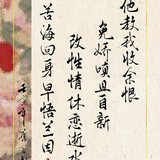 他教我收余恨
免娇嗔且自新
改性情休恋逝水
苦海回身早悟兰因